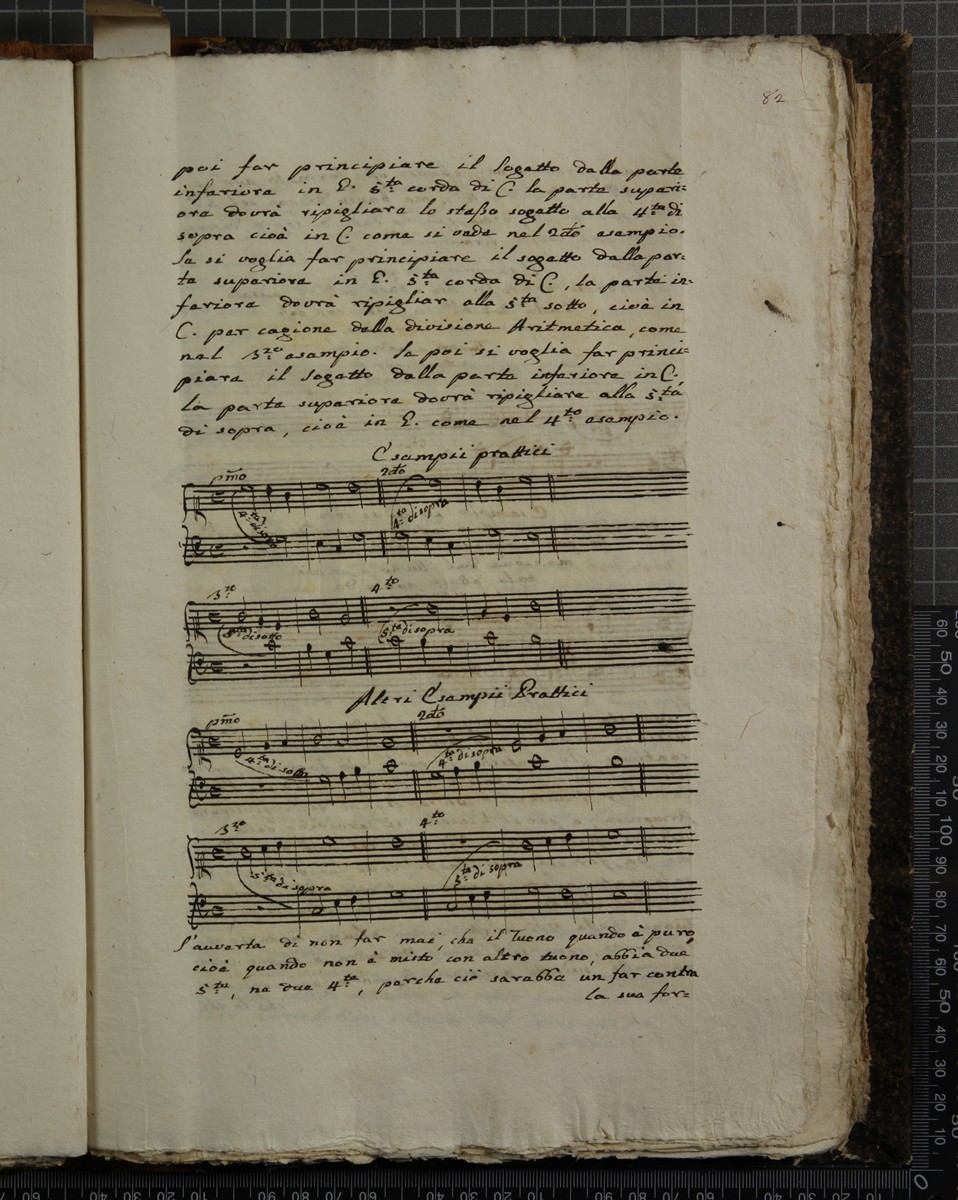 82
poi far principiare il Sogetto dalla parte
inferiore in E. 5.ta corda di C. la parte superi=
ore dovrà ripigliare lo stesso sogetto alla 4.ta di
sopra cioè in C. come si vede nel 2do esempio.
Se si voglia far principiare il sogetto dalla par=
te superiore in E. 5.ta corda di C., la parte in=
feriore dovrà ripigliar alla 5.ta sotto, cioè in
C. per cagione della divisione Aritmetica, come
nel 3.zo esempio. Se poi si voglia far princi=
piare il Sogetto dalla parte inferiore in C.,
la parte superiore dovrà ripigliare alla 5.ta
di sopra, cioè in E. come nel 4.to esempio.
Esempii prattici
pmo 2do
4.ta di sotto 4.ta di sopra
3.zo 4.to
5.ta di sotto 5.ta di sopra
Altri Esempii Prattici
pmo 2do
4.ta di sopra 4.ta di sopra
3.zo 4.to
5.ta di sopra 5.ta di sopra
S'averta di non far mai, che il Tuono quando è puro,
cioè quando non è misto con altro tuono, abbia due
5.te, ne due 4.te, perche ciò sarebbe un far contra
la sua for=